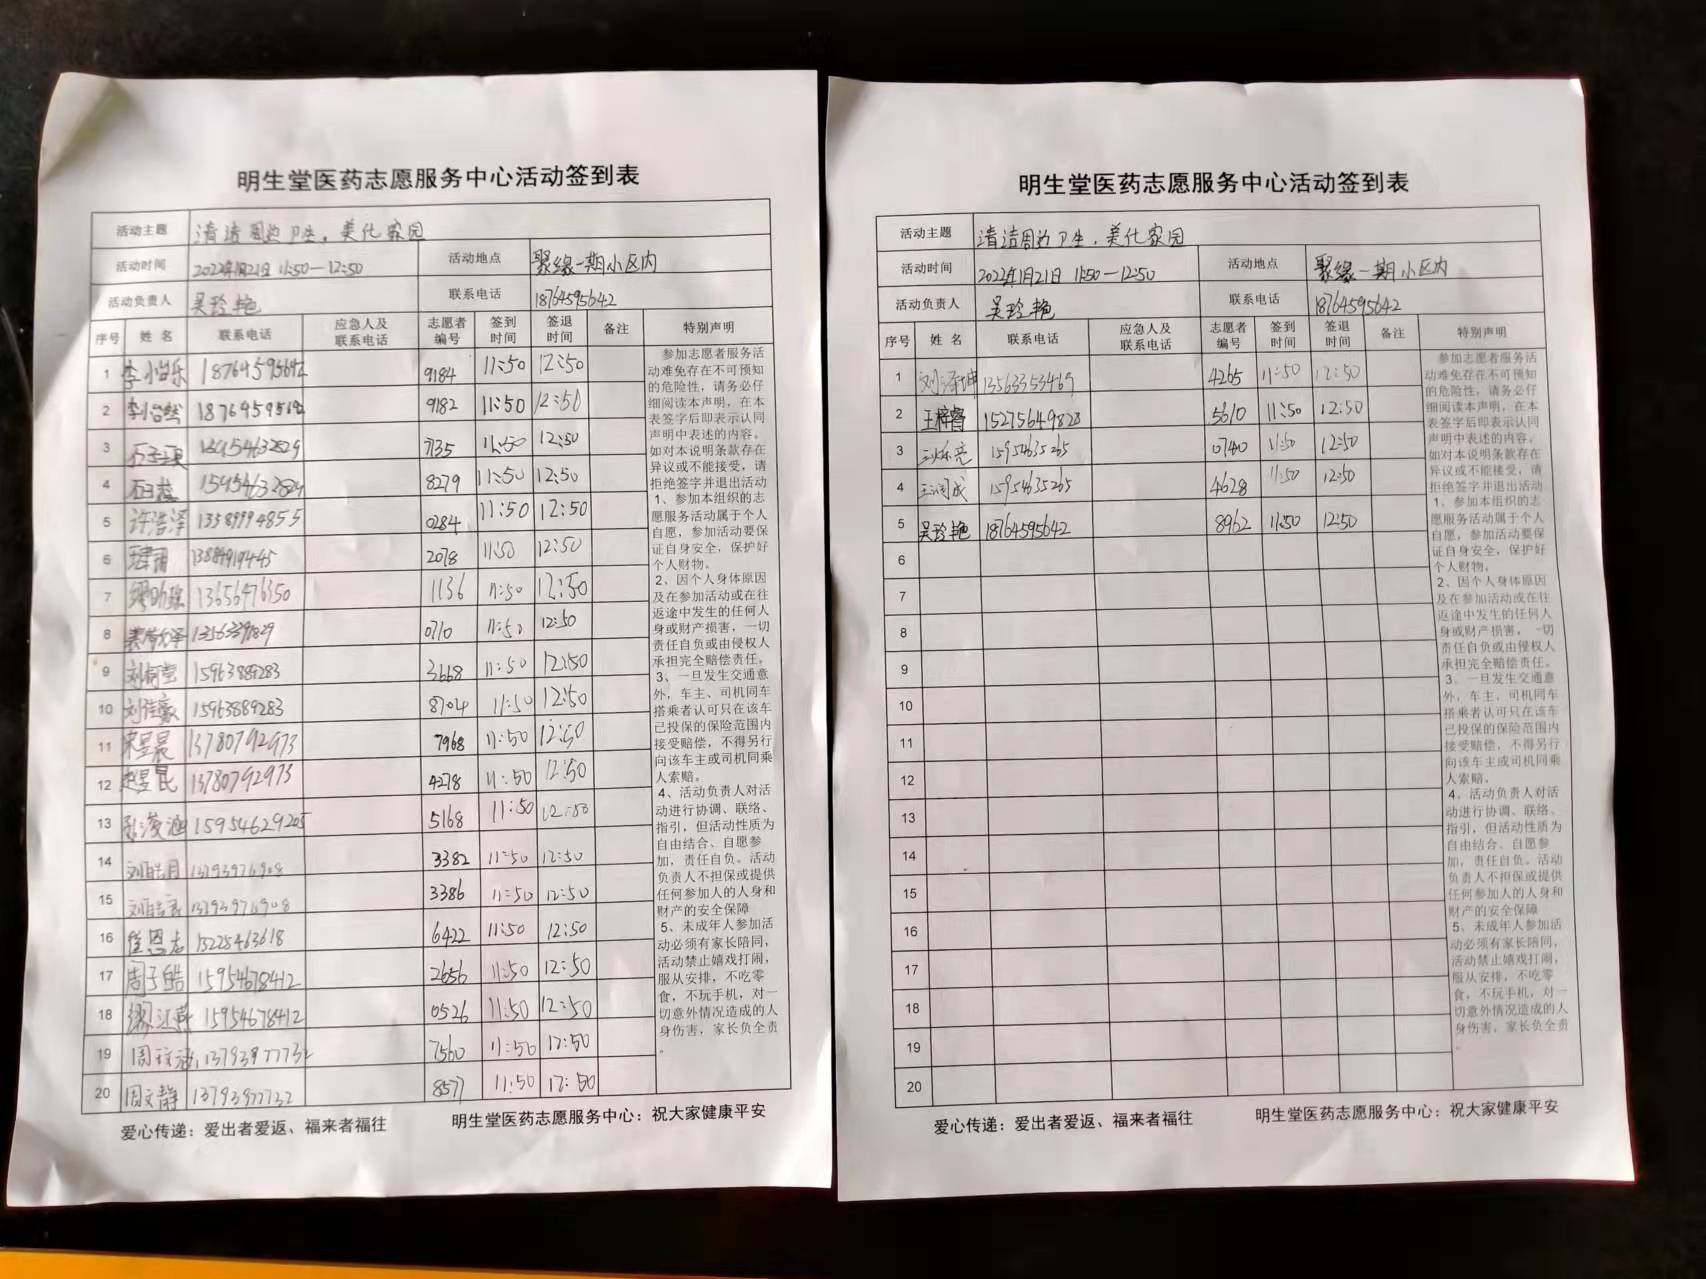 明生堂医药志愿服务中心活动签到表
活动主题 清洁周边卫生，美化家园
活动时间 2022年1月21日 11:50—12:50 活动地点 聚缘一期小区内
活动负责人 吴玲艳 联系电话 18764595642
序号 姓名 联系电话 应急人及联系电话 志愿者编号 签到时间 签退时间 备注 特别声明
1 李小怡乐 18764595642 9184 11:50 12:50
2 李怡然 9182 11:50 12:50
3 7135 11:50 12:50
4 15954632829 8279 11:50 12:50
5 许浩泽 13589994855 0284 11:50 12:50
6 2078 11:50 12:50
7 13656476350 1136 11:50 12:50
8 0710 11:50 12:50
9 15963889283 3668 11:50 12:50
10 刘佳豪 15963889283 8704 11:50 12:50
11 宋昱晨 13780792973 7968 11:50 12:50
12 赵昱昆 13780792973 4278 11:50 12:50
13 15954629205 5168 11:50 12:50
14 刘皓月 13793976908 3382 11:50 12:50
15 13793976908 3386 11:50 12:50
16 徐恩志 15225463618 6422 11:50 12:50
17 周子皓 15954678412 2656 11:50 12:50
18 梁江燕 15954678412 0526 11:50 12:50
19 周文涵 13793977732 7560 11:50 12:50
20 周文静 13793977732 8577 11:50 12:50
参加志愿者服务活
动难免存在不可预知
的危险性，请务必仔
细阅读本声明，在本
表签字后即表示认同
声明中表述的内容。
如对本说明条款存在
异议或不能接受，请
拒绝签字并退出活动
1、参加本组织的志
愿服务活动属于个人
自愿，参加活动要保
证自身安全，保护好
个人财物。
2、因个人身体原因
及在参加活动或在往
返途中发生的任何人
身或财产损害，一切
责任自负或由侵权人
承担完全赔偿责任。
3、一旦发生交通意
外，车主、司机同车
搭乘者认可只在该车
已投保的保险范围内
接受赔偿，不得另行
向该车主或司机同乘
人索赔。
4、活动负责人对活
动进行协调、联络、
指引，但活动性质为
自由结合、自愿参
加，责任自负。活动
负责人不担保或提供
任何参加人的人身和
财产的安全保障
5、未成年人参加活
动必须有家长陪同，
活动禁止嬉戏打闹，
服从安排，不吃零
食，不玩手机，对一
切意外情况造成的人
身伤害，家长负全责
。
爱心传递：爱出者爱返、福来者福往 明生堂医药志愿服务中心：祝大家健康平安
明生堂医药志愿服务中心活动签到表
活动主题 清洁周边卫生，美化家园
活动时间 2022年1月21日 11:50—12:50 活动地点 聚缘一期小区内
活动负责人 吴玲艳 联系电话 18764595642
序号 姓名 联系电话 应急人及联系电话 志愿者编号 签到时间 签退时间 备注 特别声明
1 刘泽坤 13563353469 4265 11:50 12:50
2 王梓睿 15275649828 5610 11:50 12:50
3 15954635265 0740 11:50 12:50
4 王润成 15954635265 4628 11:50 12:50
5 吴玲艳 18764595642 8962 11:50 12:50
6
7
8
9
10
11
12
13
14
15
16
17
18
19
20
参加志愿者服务活
动难免存在不可预知
的危险性，请务必仔
细阅读本声明，在本
表签字后即表示认同
声明中表述的内容。
如对本说明条款存在
异议或不能接受，请
拒绝签字并退出活动
1、参加本组织的志
愿服务活动属于个人
自愿，参加活动要保
证自身安全，保护好
个人财物。
2、因个人身体原因
及在参加活动或在往
返途中发生的任何人
身或财产损害，一切
责任自负或由侵权人
承担完全赔偿责任。
3、一旦发生交通意
外，车主、司机同车
搭乘者认可只在该车
已投保的保险范围内
接受赔偿，不得另行
向该车主或司机同乘
人索赔。
4、活动负责人对活
动进行协调、联络、
指引，但活动性质为
自由结合、自愿参
加，责任自负。活动
负责人不担保或提供
任何参加人的人身和
财产的安全保障
5、未成年人参加活
动必须有家长陪同，
活动禁止嬉戏打闹，
服从安排，不吃零
食，不玩手机，对一
切意外情况造成的人
身伤害，家长负全责
。
爱心传递：爱出者爱返、福来者福往 明生堂医药志愿服务中心：祝大家健康平安